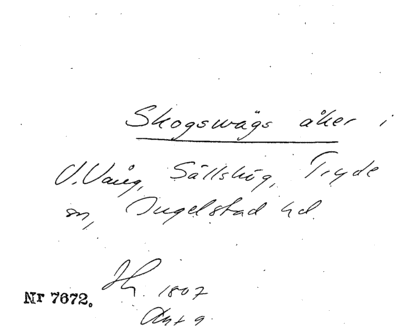 Skogswägs åker i
V. Vång, Sällshög, Tryde
sn, Ingelstad hd.
Nr 7672.
1807